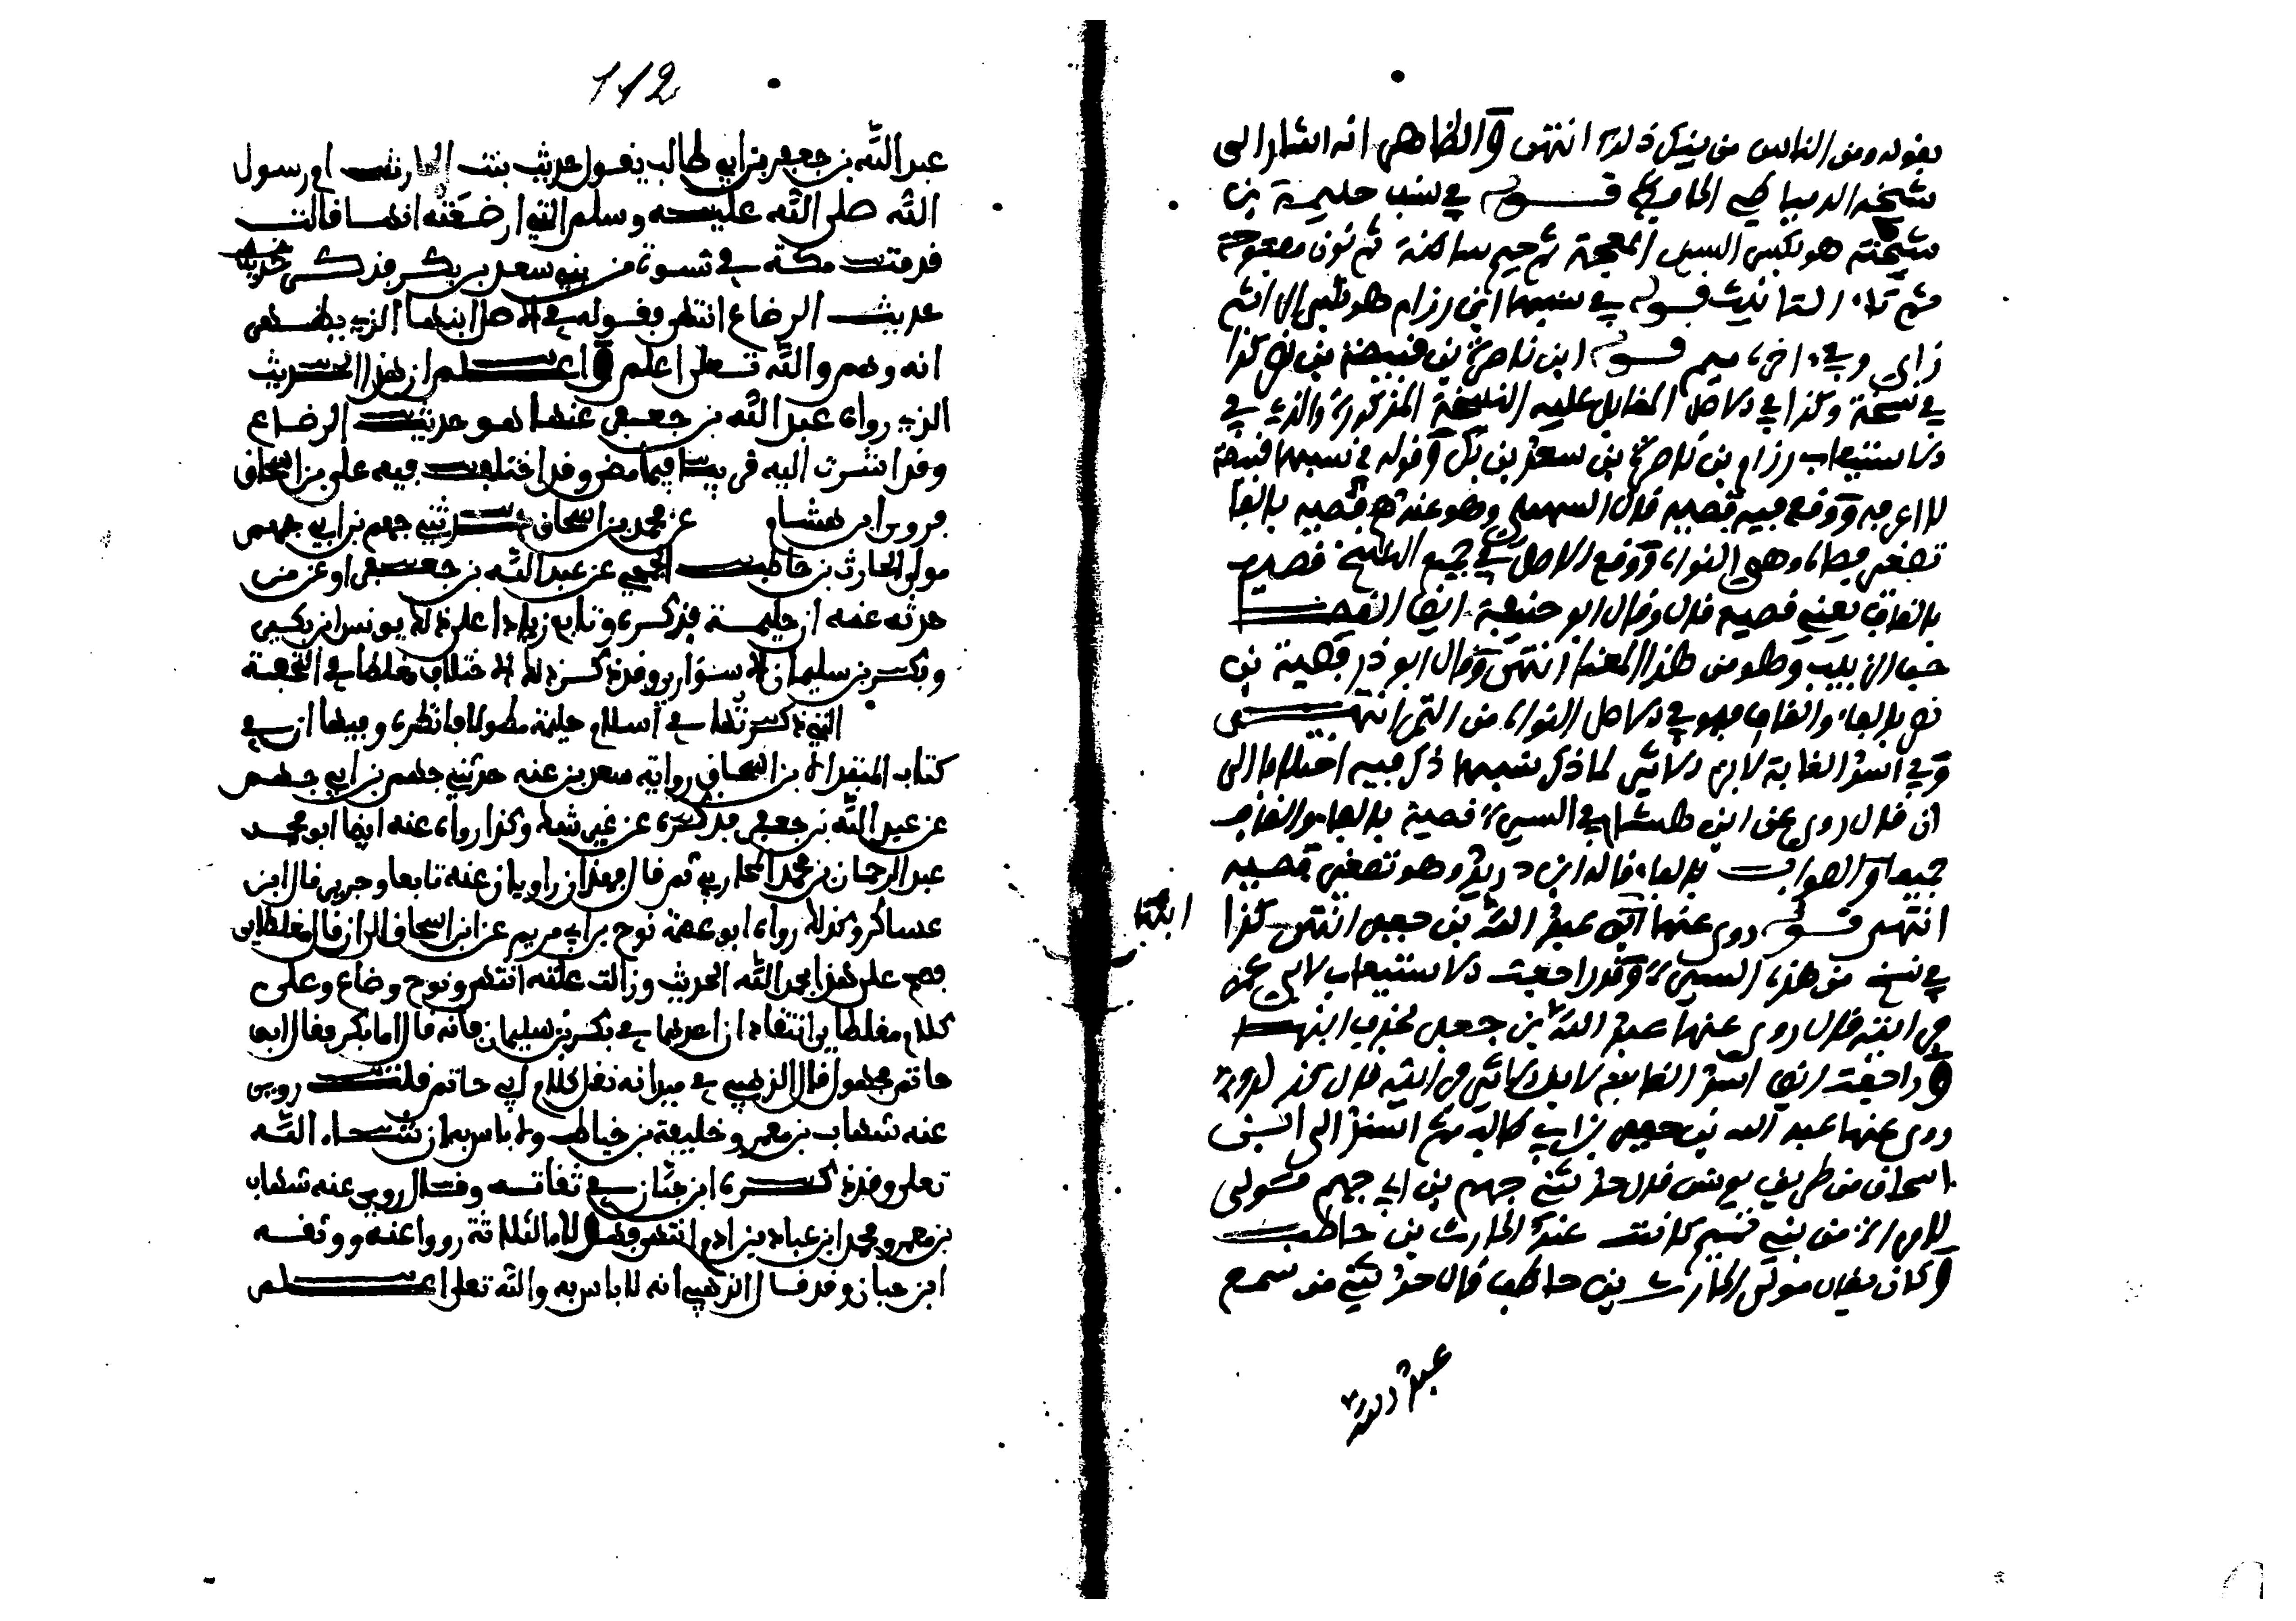 بقوله ومن الناس من ينكر ذلك انتهى والظاهر انه اشار الى
شيخه الدمياطي الحافظ قوله في نسب حليمة بن
شجنة هو بكسر الشين المعجمة ثم جيم ساكنة ثم نون مفتوحة
ثم تاء التانيث قوله في نسبها ابن رزام هو بكسر الراء ثم
زاي وفي اخره ميم قوله ابن ناصرة بن قبيصة بن نصر كذا
في نسخة وكذا في الاصل المقابل عليه النسخة المذكورة والذي في
الاستيعاب رزام بن ناصرة بن سعد بن بكر وقوله في نسبها قبيصة
لا اعرفه ووقع فيه فصيه قال السهيلي وهو عندهم فصيه بالفا
تصغير فصاة وهي النواة ووقع الاصل في جميع النسخ قصية
بالقاف يعني قصيه قال وقال ابو حنيفة ايضا الفصا
حب الزبيب وهو من هذا المعنى انتهى وقال ابو ذر فصية بن
نصر بالفاء والقاف فهو في الاصل النواة من التمر انتهى
وفي اسد الغابة لابن الاثير لما ذكر نسبها ذكر فيه اختلافا الى
ان قال روى عن ابن هشام في السيرة فصية بالفاء والقاف
جميعا والصواب بالفاء قاله ابن دريد وهو تصغير فصيه
انتهى قوله روى عنها ابنها عبد الله بن جعفر انتهى كذا
في نسخ من هذه السيرة وقد راجعت الاستيعاب لابي عمر
قال روى عنها عبد الله بن جعفر بحذف ابنها
وراجعت ايضا اسد الغابة لابن الاثير قال
روى عنها عبد الله بن جعفر بن ابي طالب ثم اسند الى ابن
اسحاق من طريق يونس قال حدثني جهم بن ابي جهم مولى
لامراة من بني تميم كانت عند الحارث بن حاطب
وكان يقال مولى الحارث بن حاطب قال حدثني من سمع
عبد الله
112
عبد الله بن جعفر بن ابي طالب يقول حديث بنت الحارث ام رسول
الله صلى الله عليه وسلم التي ارضعته انها قالت
قدمت مكة في نسوة من بني سعد بن بكر فذكرت
حديث الرضاع انتهى فقوله في الاصل ابنها الذي يظهر
انه وهم والله تعلى اعلم واعلم ان هذا الحديث
الذي رواه عبد الله بن جعفر عنها هو حديث الرضاع
وقد اشرت اليه قريبا فيما مضى وقد اختلف فيه على بن اسحاق
فروى ابن هشام عن محمد بن اسحاق حدثني جهم بن ابي جهم
مولى الحارث بن حاطب الجمحي عن عبد الله بن جعفر او عن من
حدثه عنه ان حليمة فذكره وتابع زيادا على ذلك يونس بن بكير
وبكر بن سليمان الاسواري وقد ذكر ذلك الاختلاف مغلطاي في التحفة
التي ذكرتها في اسلام حليمة مطولا فانظره وفيها ان في
كتاب المبتدا لابن اسحاق رواية سعد بن عنه حدثني جهم بن ابي جهم
عن عبد الله بن جعفر فذكره عن غير شك وكذا رواه عنه ايضا ابو محمد
عبد الرحمان بن محمد المحاربي ثم قال فهذان راويان عنه تابعا وجرير قال ابن
عساكر وكذلك رواه ابو عصمة نوح بن ابي مريم عن ابن اسحاق الى ان قال مغلطاي
فصح على هذا بحمد الله الحديث وزالت علته انتهى ونوح وضاع وعلى
كلام مغلطاي انتقادان احدهما في بكر بن سليمان فانه قال اما بكر فقال ابو
حاتم مجهول قال الذهبي في ميزانه نقل كلام ابي حاتم قلت روى
عنه شهاب بن معمر وخليفة بن خياط ولا باس به ان شاء الله
تعلى وقد ذكره ابن حبان في ثقاته وقال روى عنه شهاب
بن معمر ومحمد بن عباد بن ادم انتهى فهؤلاء الثلاثة رووا عنه ووثقه
ابن حبان وقد قال الذهبي انه لا باس به والله تعلى اعلم